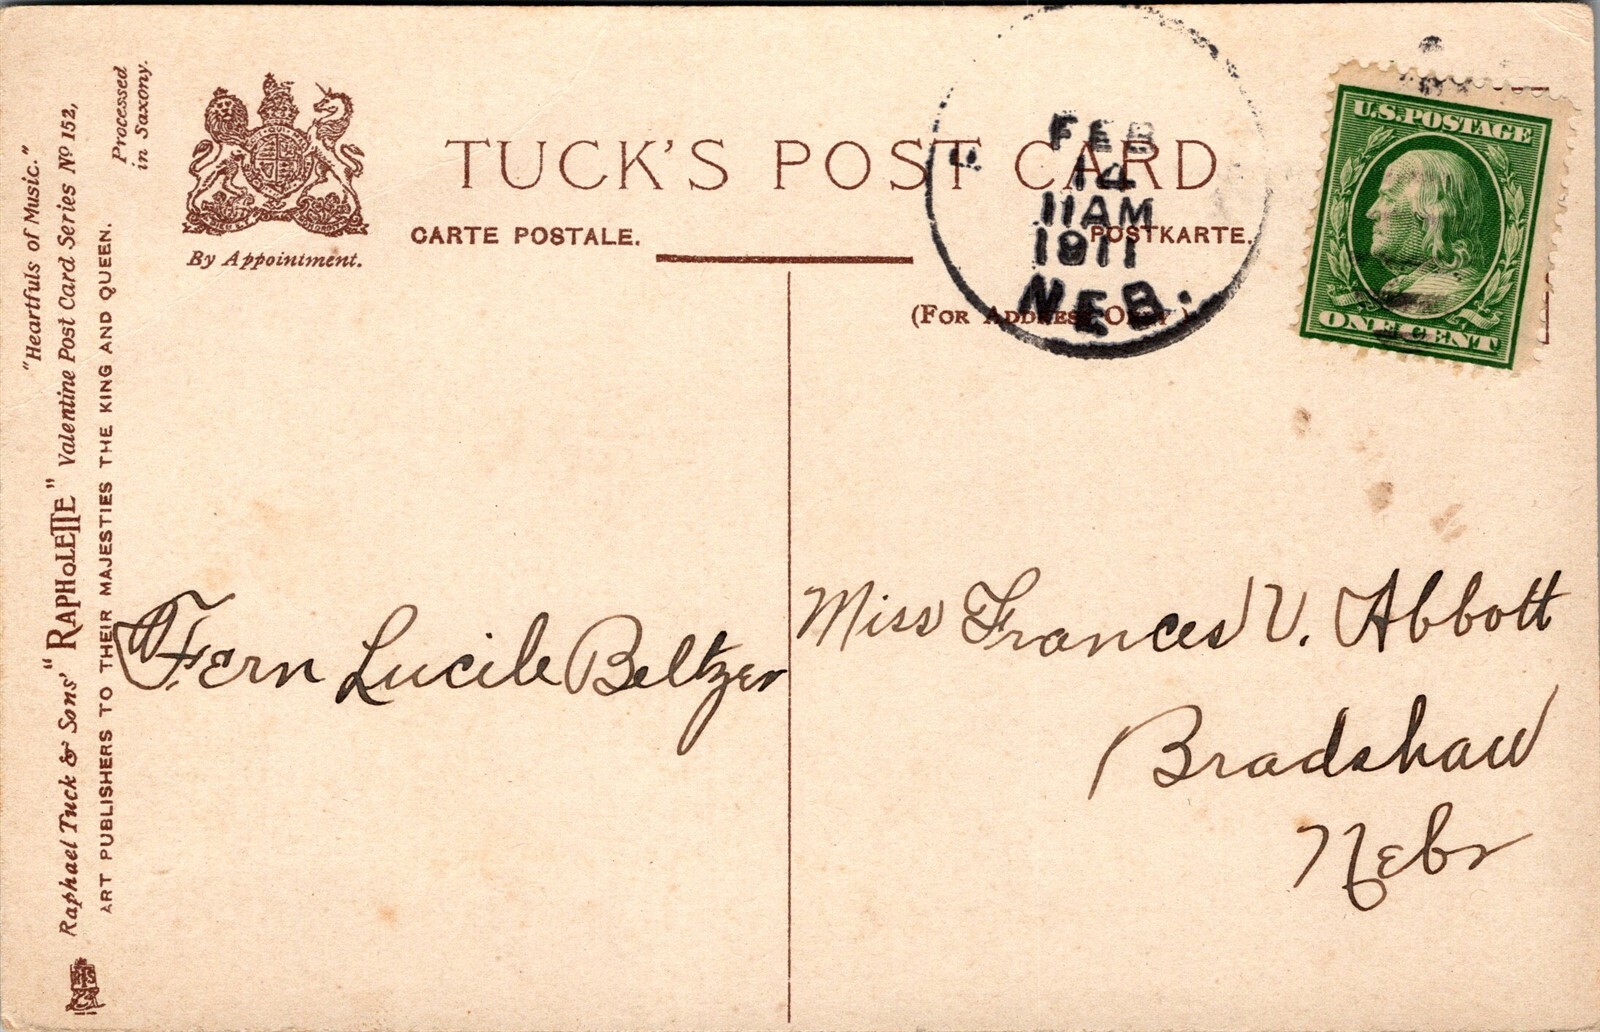 "Heartfuls of Music."
Raphael Tuck & Sons' "RAPHOLETTE" Valentine Post Card Series Nº 152,
ART PUBLISHERS TO THEIR MAJESTIES THE KING AND QUEEN.
Processed
in Saxony.
By Appointment.
TUCK'S POST CARD
CARTE POSTALE.
POSTKARTE.
(FOR ADDRESS ONLY)
FEB
14
11AM
1911
NEB.
U.S. POSTAGE
ONE CENT
Fern Lucile Beltzer
Miss Frances V. Abbott
Bradshaw
Nebr